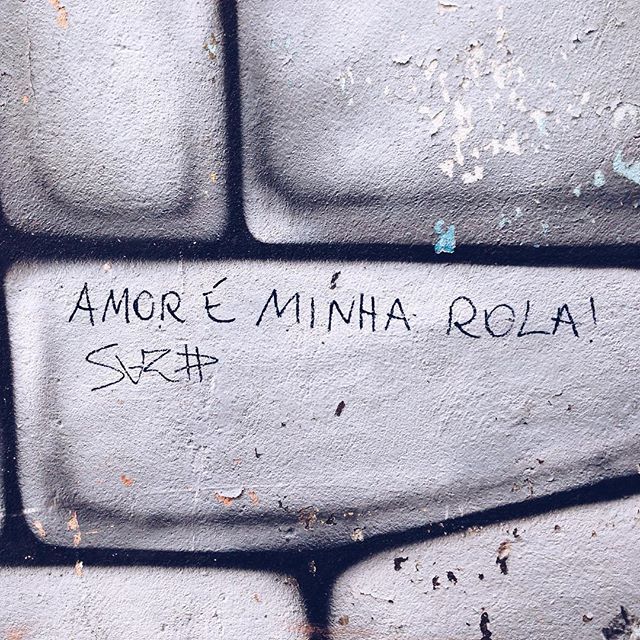 AMOR É MINHA ROLA!